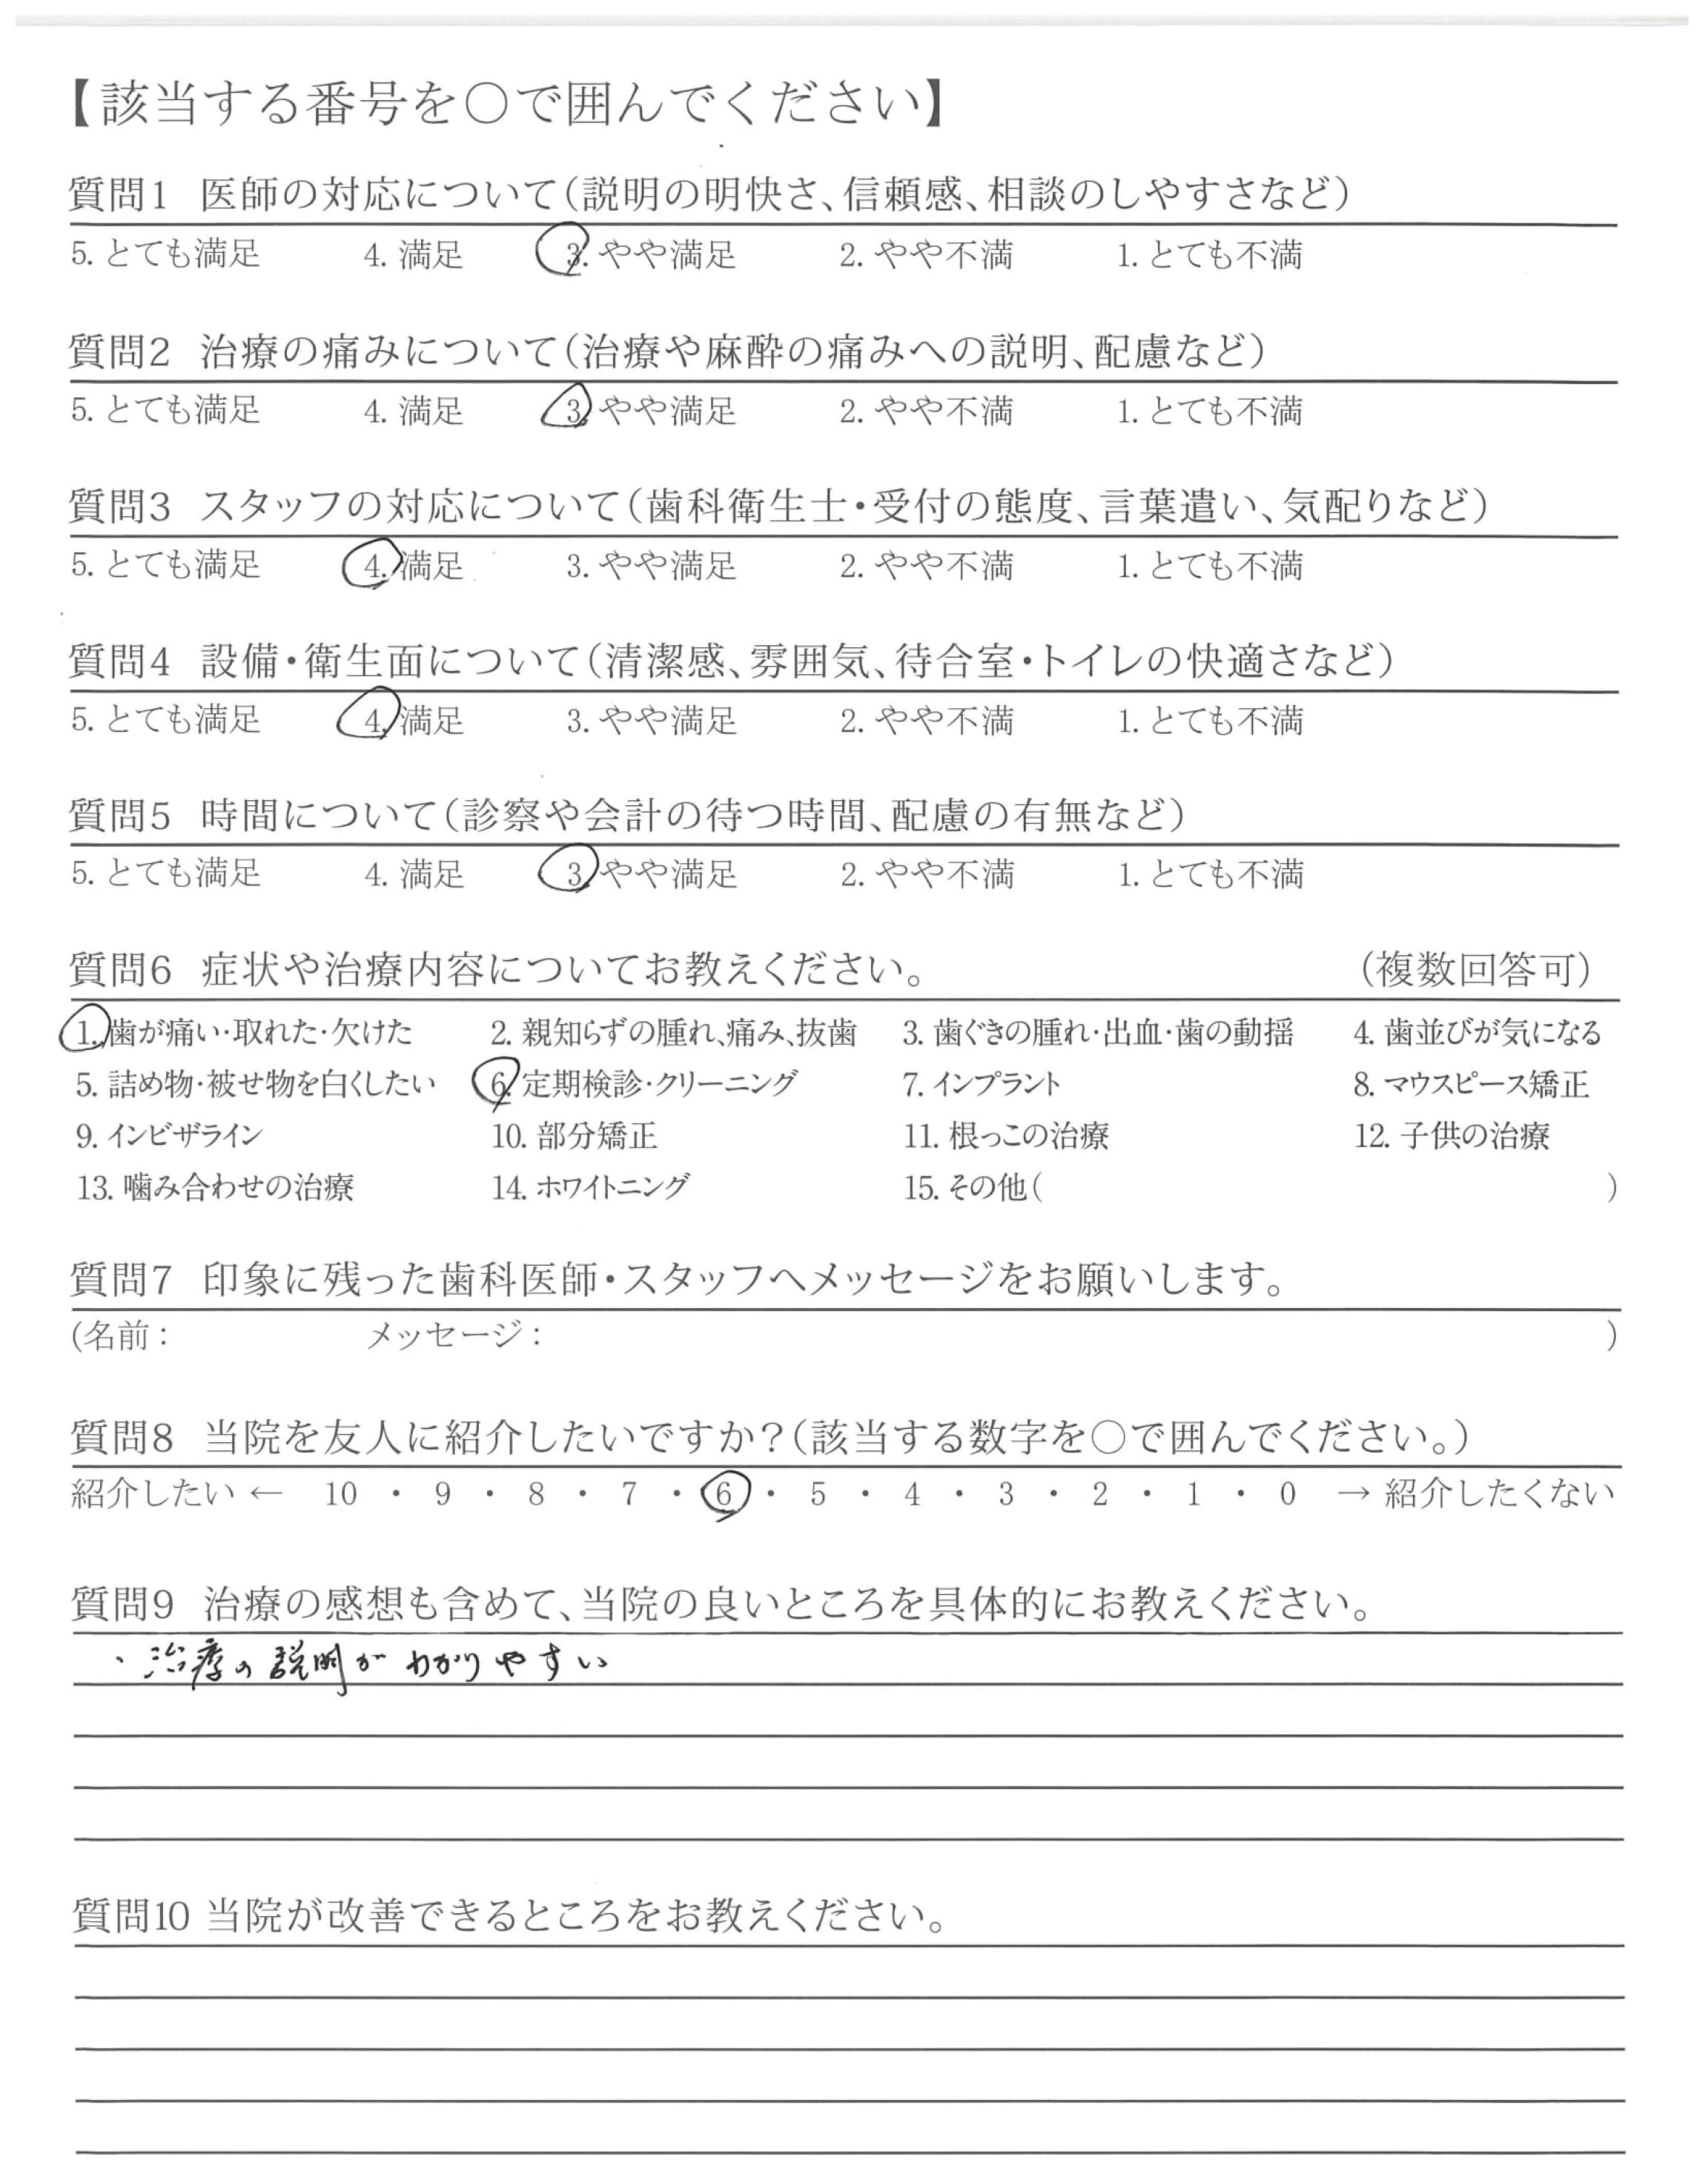 【該当する番号を○で囲んでください】
質問1 医師の対応について(説明の明快さ、信頼感、相談のしやすさなど)
5. とても満足 4. 満足 3. やや満足 2. やや不満 1. とても不満
質問2 治療の痛みについて(治療や麻酔の痛みへの説明、配慮など)
5. とても満足 4. 満足 3. やや満足 2. やや不満 1. とても不満
質問3 スタッフの対応について(歯科衛生士・受付の態度、言葉遣い、気配りなど)
5. とても満足 4. 満足 3. やや満足 2. やや不満 1. とても不満
質問4 設備・衛生面について(清潔感、雰囲気、待合室・トイレの快適さなど)
5. とても満足 4. 満足 3. やや満足 2. やや不満 1. とても不満
質問5 時間について(診察や会計の待つ時間、配慮の有無など)
5. とても満足 4. 満足 3. やや満足 2. やや不満 1. とても不満
質問6 症状や治療内容についてお教えください。 (複数回答可)
1. 歯が痛い・取れた・欠けた 2. 親知らずの腫れ、痛み、抜歯 3. 歯ぐきの腫れ・出血・歯の動揺 4. 歯並びが気になる
5. 詰め物・被せ物を白くしたい 6. 定期検診・クリーニング 7. インプラント 8. マウスピース矯正
9. インビザライン 10. 部分矯正 11. 根っこの治療 12. 子供の治療
13. 噛み合わせの治療 14. ホワイトニング 15. その他( )
質問7 印象に残った歯科医師・スタッフへメッセージをお願いします。
(名前: メッセージ: )
質問8 当院を友人に紹介したいですか?(該当する数字を○で囲んでください。)
紹介したい ← 10 ・ 9 ・ 8 ・ 7 ・ 6 ・ 5 ・ 4 ・ 3 ・ 2 ・ 1 ・ 0 → 紹介したくない
質問9 治療の感想も含めて、当院の良いところを具体的にお教えください。
・治療の説明がわかりやすい
質問10 当院が改善できるところをお教えください。